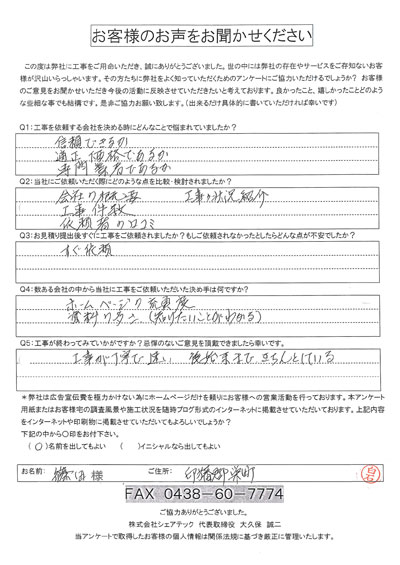 お客様のお声をお聞かせください
この度は弊社に工事をご用命いただき、誠にありがとうございました。世の中には弊社の存在やサービスをご存知ないお客様
が沢山いらっしゃいます。その方たちに弊社をよく知っていただくためのアンケートにご協力いただけるでしょうか? お客様
のご意見をお聞かせいただき今後の活動に反映させていきたいと考えております。良かったこと、嬉しかったことどのよう
な些細な事でも結構です。是非ご協力お願い致します。(出来るだけ具体的に書いていただければ幸いです)
Q1:工事を依頼する会社を決める時にどんなことで悩まれていましたか?
信頼できるか
適正価格であるか
専門業者であるか
Q2:当社にご依頼いただく際にどのような点を比較・検討されましたか?
会社の概要 工事の状況紹介
工事件数
依頼者の口コミ
Q3:お見積り提出後すぐに工事をご依頼されましたか?もしご依頼されなかったとしたらどんな点が不安でしたか?
すぐ依頼
Q4:数ある会社の中から当社に工事をご依頼いただいた決め手は何ですか?
ホームページの充実度
資料の多さ (知りたいことがわかる)
Q5:工事が終わってみていかがですか?忌憚のないご意見を頂戴できましたら幸いです。
工事が丁寧で速い 後始末まできちんとしている
*弊社は広告宣伝費を極力かけない為にホームページだけを頼りにお客様への営業活動を行っております。本アンケート
用紙またはお客様宅の調査風景や施工状況を随時ブログ形式のインターネットに掲載させていただいております。上記内容
をインターネットや印刷物に掲載させていただいてもよろしいでしょうか?
下記の中から○印をお付下さい。
(○)名前を出してもよい ( )イニシャルなら出してもよい
お名前: 様 ご住所: 印旛郡栄町
FAX 0438-60-7774
ご協力ありがとうございました。
株式会社シェアテック 代表取締役 大久保 誠二
当アンケートで取得したお客様の個人情報は関係法規に基づき厳正に管理いたします。